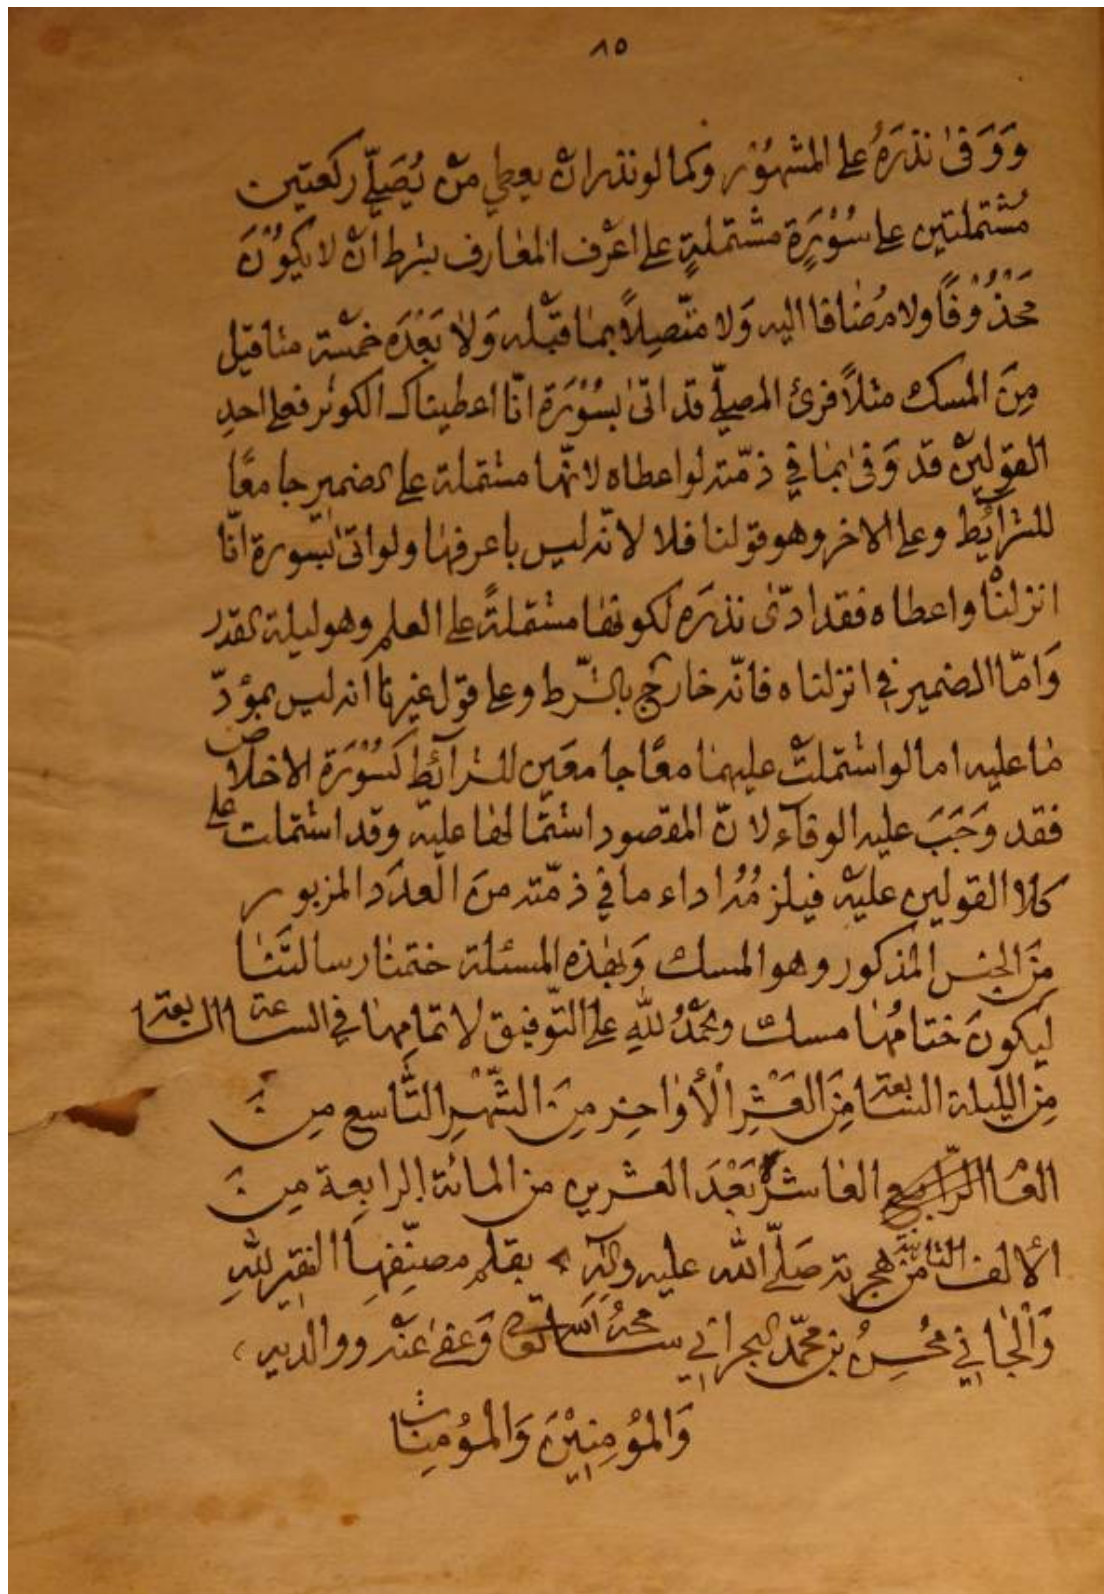 ٨٥
وَوَفىٰ نذرَهُ على المشهُوْر وكما لو نذر انْ يعطي منْ يُصَلّي ركعتين
مُشتملتين على سُوْرَةٍ مشتملةٍ على اعْرف المعٰارف بشرط انْ لا يكوُنَ
مَحْذُوْفًا ولا مُضٰافا اليه وَلا متّصِلاً بمٰا قبْله وَلاٰ بَعْدَه خمْسة مثاقيل
مِنَ المسك مثلاً فرئ المصلّي قد اتىٰ بسُوْرَة انّا اعطيناك الكوثر فعلى احدِ
القولينْ قد وَفىٰ بمٰا في ذمّته لو اعطاه لانّها مشتملة على الضمير جامعًا
للشرائِط وعلى الاخر وهو قولنا فلا لانّه ليس باعرفهٰا ولو اتىٰ بسّورة انّا
انزلنٰا واعطاه فقد ادّىٰ نذرَه لكونها مشتملةً على العلم وهو ليلة القدر
وَامّا الضمير في انزلناه فانّه خارجٌ بالشّرط وعلى قول غيرنا انه ليس بمؤدّ
مٰا عليه اما لو اشتملتْ عليهمٰا معًا جامعَين للشرآئط كسُوْرَة الاخلاص
فقد وَجَبَ عليه الوفآء لانّ المقصود اشتمالها عليه وقد اشتملت على
كلا القولين عليْه فيلزمُهُ اداء ما في ذمّته منَ العدَد المزبور
مِنَ الجنس المذكور وهو المسك وَبهٰذه المسئلة ختمنٰا رسالتَنٰا
ليكونَ ختامُهٰا مسك والحمْدُ للهِ على التّوفيق لاتمامهٰا في الساعة السابعة
مِنَ الليلة السابعة مِنَ العَشْرِ الأوٰاخِر مِنَ الشّهْرِ التّاسع مِنَ
العٰام العٰاشر بَعْدَ العشرين من المائة الرابعة مِنَ
الألف الثامنة هجرية صَلّى الله عليه وآلِهِ بقلم مصنّفِهٰا الفقير للهِ
وَالجٰاني مُحْسِنُ بن محمّد البحراني سامحهُ الله تعالى وَعفىٰ عَنْه ووالديه
وَالمُؤمِنِيْنَ وَالمُؤمِنٰات